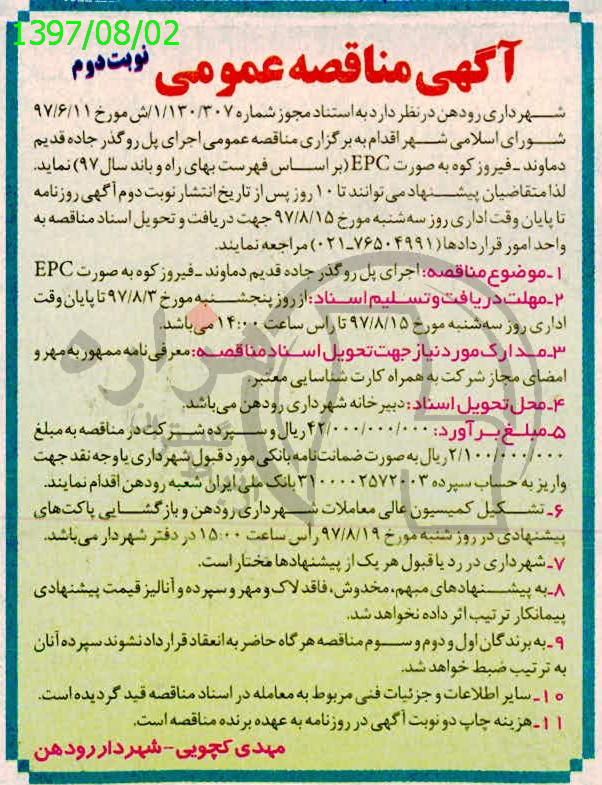 1397/08/02
آگهی مناقصه عمومی
نوبت دوم
شهرداری رودهن در نظر دارد به استناد مجوز شماره ۱/۱۳۰/۳۰۷/ش مورخ ۹۷/۶/۱۱
شورای اسلامی شهر اقدام به برگزاری مناقصه عمومی اجرای پل روگذر جاده قدیم
دماوند ـ فیروز کوه به صورت EPC (بر اساس فهرست بهای راه و باند سال ۹۷) نماید.
لذا متقاضیان پیشنهاد می توانند تا ۱۰ روز پس از تاریخ انتشار نوبت دوم آگهی روزنامه
تا پایان وقت اداری روز سه شنبه مورخ ۹۷/۸/۱۵ جهت دریافت و تحویل اسناد مناقصه به
واحد امور قراردادها (۷۶۵۰۴۹۹۱ـ۰۲۱) مراجعه نمایند.
۱ـ موضوع مناقصه: اجرای پل روگذر جاده قدیم دماوند ـ فیروز کوه به صورت EPC
۲ـ مهلت دریافت و تسلیم اسناد: از روز پنجشنبه مورخ ۹۷/۸/۳ تا پایان وقت
اداری روز سه شنبه مورخ ۹۷/۸/۱۵ تا راس ساعت ۱۴:۰۰ می باشد.
۳ـ مدارک مورد نیاز جهت تحویل اسناد مناقصه: معرفی نامه ممهور به مهر و
امضای مجاز شرکت به همراه کارت شناسایی معتبر.
۴ـ محل تحویل اسناد: دبیرخانه شهرداری رودهن می باشد.
۵ـ مبلغ برآورد: ۴۲/۰۰۰/۰۰۰/۰۰۰ ریال و سپرده شرکت در مناقصه به مبلغ
۲/۱۰۰/۰۰۰/۰۰۰ ریال به صورت ضمانت نامه بانکی مورد قبول شهرداری یا وجه نقد جهت
واریز به حساب سپرده ۳۱۰۰۰۰۲۵۷۲۰۰۳ بانک ملی ایران شعبه رودهن اقدام نمایند.
۶ـ تشکیل کمیسیون عالی معاملات شهرداری رودهن و بازگشایی پاکت های
پیشنهادی در روز شنبه مورخ ۹۷/۸/۱۹ راس ساعت ۱۵:۰۰ در دفتر شهردار می باشد.
۷ـ شهرداری در رد یا قبول هر یک از پیشنهادها مختار است.
۸ـ به پیشنهادهای مبهم، مخدوش، فاقد لاک و مهر و سپرده و آنالیز قیمت پیشنهادی
پیمانکار ترتیب اثر داده نخواهد شد.
۹ـ به برندگان اول و دوم و سوم مناقصه هر گاه حاضر به انعقاد قرارداد نشوند سپرده آنان
به ترتیب ضبط خواهد شد.
۱۰ـ سایر اطلاعات و جزئیات فنی مربوط به معامله در اسناد مناقصه قید گردیده است.
۱۱ـ هزینه چاپ دو نوبت آگهی در روزنامه به عهده برنده مناقصه است.
مهدی کچویی - شهردار رودهن